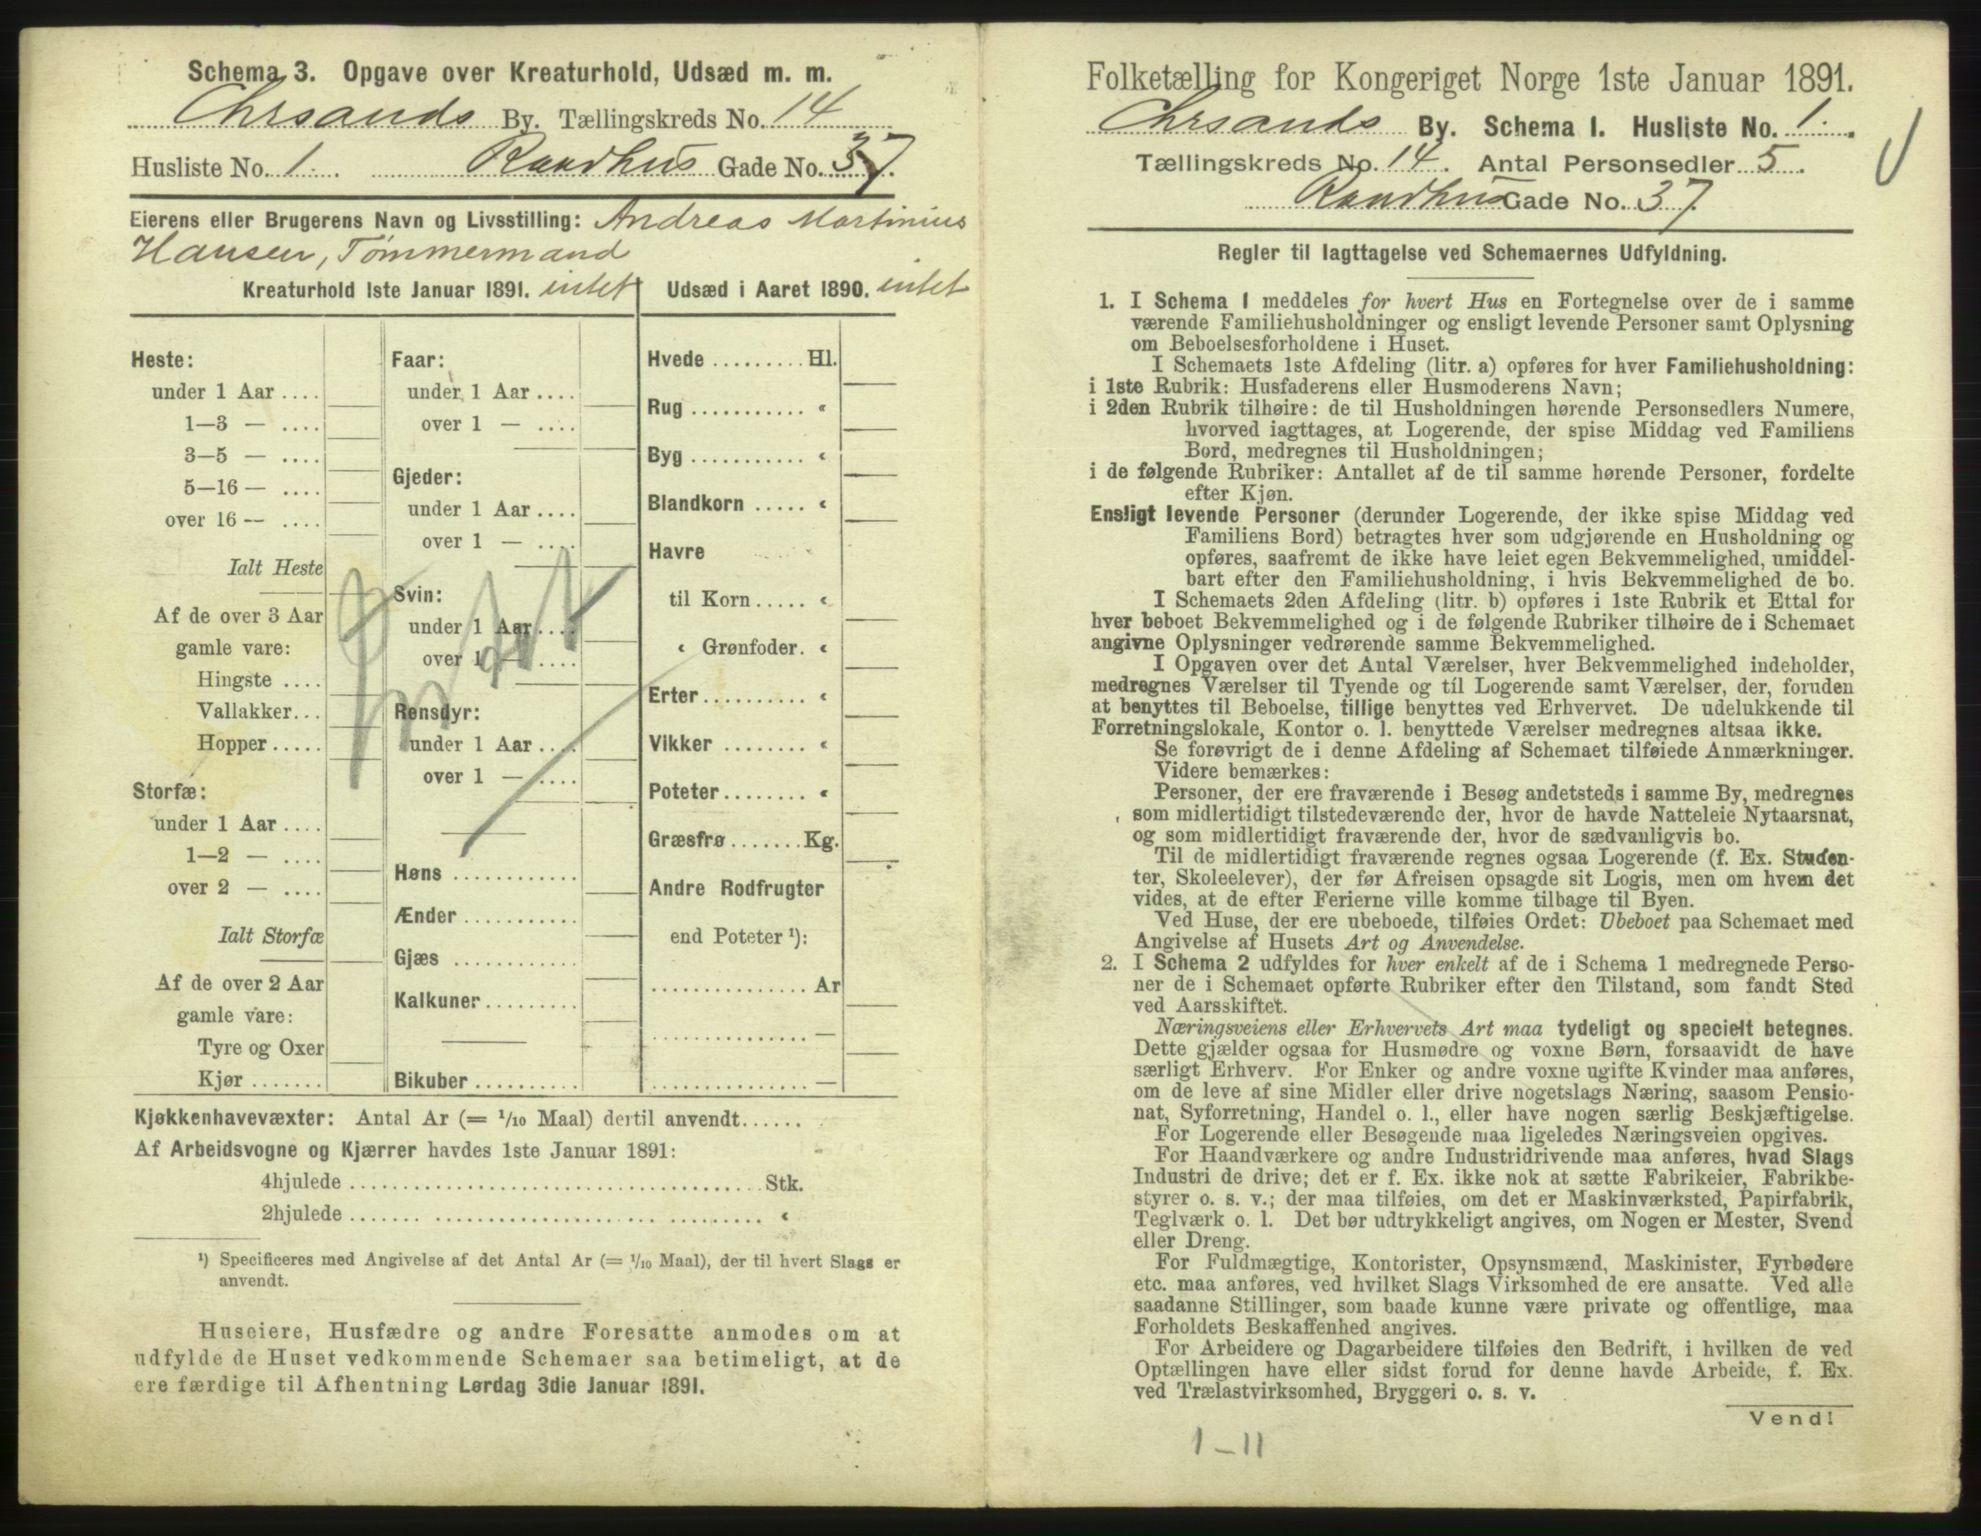 Schema 3. Opgave over Kreaturhold, Udsæd m. m.
Chrsands By. Tællingskreds No. 14
Husliste No. 1. Raadhus Gade No. 37.
Eierens eller Brugerens Navn og Livsstilling: Andreas Martinius
Hansen, Tømmermand
Kreaturhold 1ste Januar 1891. intet
Udsæd i Aaret 1890. intet
Heste:
under 1 Aar ....
1—3 — ....
3—5 — ....
5—16 — ....
over 16 — ....
Ialt Heste
Af de over 3 Aar
gamle vare:
Hingste ....
Vallakker...
Hopper .....
Storfæ:
under 1 Aar ....
1—2 — ....
over 2 — ....
Ialt Storfæ
Af de over 2 Aar
gamle vare:
Tyre og Oxer
Kjør .......
Faar:
under 1 Aar ....
over 1 — ....
Gjeder:
under 1 Aar ....
over 1 — ....
Svin:
under 1 Aar ....
over 1 — ....
Rensdyr:
under 1 Aar ....
over 1 — ....
Høns ............
Ænder ...........
Gjæs ............
Kalkuner.........
Bikuber ..........
Hvede ......... Hl.
Rug ........... «
Byg ........... «
Blandkorn ..... «
Havre
til Korn ..... «
« Grønfoder. «
Erter.......... «
Vikker ........ «
Poteter........ «
Græsfrø ....... Kg.
Andre Rodfrugter
end Poteter ¹):
............... Ar
............... —
............... —
Kjøkkenhavevæxter: Antal Ar (= 1/10 Maal) dertil anvendt......
Af Arbeidsvogne og Kjærrer havdes 1ste Januar 1891:
4hjulede ........................................ Stk.
2hjulede ........................................ «
¹) Specificeres med Angivelse af det Antal Ar (= 1/10 Maal), der til hvert Slags er
anvendt.
Huseiere, Husfædre og andre Foresatte anmodes om at
udfylde de Huset vedkommende Schemaer saa betimeligt, at de
ere færdige til Afhentning Lørdag 3die Januar 1891.
Folketælling for Kongeriget Norge 1ste Januar 1891.
Chrsands By. Schema 1. Husliste No. 1.
Tællingskreds No. 14. Antal Personsedler 5.
Raadhus Gade No. 37.
Regler til Iagttagelse ved Schemaernes Udfyldning.
1. I Schema 1 meddeles for hvert Hus en Fortegnelse over de i samme
værende Familiehusholdninger og ensligt levende Personer samt Oplysning
om Beboelsesforholdene i Huset.
I Schemaets 1ste Afdeling (litr. a) opføres for hver Familiehusholdning:
i 1ste Rubrik: Husfaderens eller Husmoderens Navn;
i 2den Rubrik tilhøire: de til Husholdningen hørende Personsedlers Numere,
hvorved iagttages, at Logerende, der spise Middag ved Familiens
Bord, medregnes til Husholdningen;
i de følgende Rubriker: Antallet af de til samme hørende Personer, fordelte
efter Kjøn.
Ensligt levende Personer (derunder Logerende, der ikke spise Middag ved
Familiens Bord) betragtes hver som udgjørende en Husholdning og
opføres, saafremt de ikke have leiet egen Bekvemmelighed, umiddel-
bart efter den Familiehusholdning, i hvis Bekvemmelighed de bo.
I Schemaets 2den Afdeling (litr. b) opføres i 1ste Rubrik et Ettal for
hver beboet Bekvemmelighed og i de følgende Rubriker tilhøire de i Schemaet
angivne Oplysninger vedrørende samme Bekvemmelighed.
I Opgaven over det Antal Værelser, hver Bekvemmelighed indeholder,
medregnes Værelser til Tyende og til Logerende samt Værelser, der, foruden
at benyttes til Beboelse, tillige benyttes ved Erhvervet. De udelukkende til
Forretningslokale, Kontor o. l. benyttede Værelser medregnes altsaa ikke.
Se forøvrigt de i denne Afdeling af Schemaet tilføiede Anmærkninger.
Videre bemærkes:
Personer, der ere fraværende i Besøg andetsteds i samme By, medregnes
som midlertidigt tilstedeværende der, hvor de havde Natteleie Nytaarsnat,
og som midlertidigt fraværende der, hvor de sædvanligvis bo.
Til de midlertidigt fraværende regnes ogsaa Logerende (f. Ex. Studen-
ter, Skoleelever), der før Afreisen opsagde sit Logis, men om hvem det
vides, at de efter Ferierne ville komme tilbage til Byen.
Ved Huse, der ere ubeboede, tilføies Ordet: Ubeboet paa Schemaet med
Angivelse af Husets Art og Anvendelse.
2. I Schema 2 udfyldes for hver enkelt af de i Schema 1 medregnede Perso-
ner de i Schemaet opførte Rubriker efter den Tilstand, som fandt Sted
ved Aarsskiftet.
Næringsveiens eller Erhvervets Art maa tydeligt og specielt betegnes.
Dette gjælder ogsaa for Husmødre og voxne Børn, forsaavidt de have
særligt Erhverv. For Enker og andre voxne ugifte Kvinder maa anføres,
om de leve af sine Midler eller drive nogetslags Næring, saasom Pensio-
nat, Syforretning, Handel o. l., eller have nogen særlig Beskjæftigelse.
For Logerende eller Besøgende maa ligeledes Næringsveien opgives.
For Haandværkere og andre Industridrivende maa anføres, hvad Slags
Industri de drive; det er f. Ex. ikke nok at sætte Fabrikeier, Fabrikbe-
styrer o. s. v.; der maa tilføies, om det er Maskinværksted, Papirfabrik,
Teglværk o. l. Det bør udtrykkeligt angives, om Nogen er Mester, Svend
eller Dreng.
For Fuldmægtige, Kontorister, Opsynsmænd, Maskinister, Fyrbødere
etc. maa anføres, ved hvilket Slags Virksomhed de ere ansatte. Ved alle
saadanne Stillinger, som baade kunne være private og offentlige, maa
Forholdets Beskaffenhed angives.
For Arbeidere og Dagarbeidere tilføies den Bedrift, i hvilken de ved
Optællingen have eller sidst forud for denne havde Arbeide, f. Ex.
ved Trælastvirksomhed, Bryggeri o. s. v.
Vend!
1-11